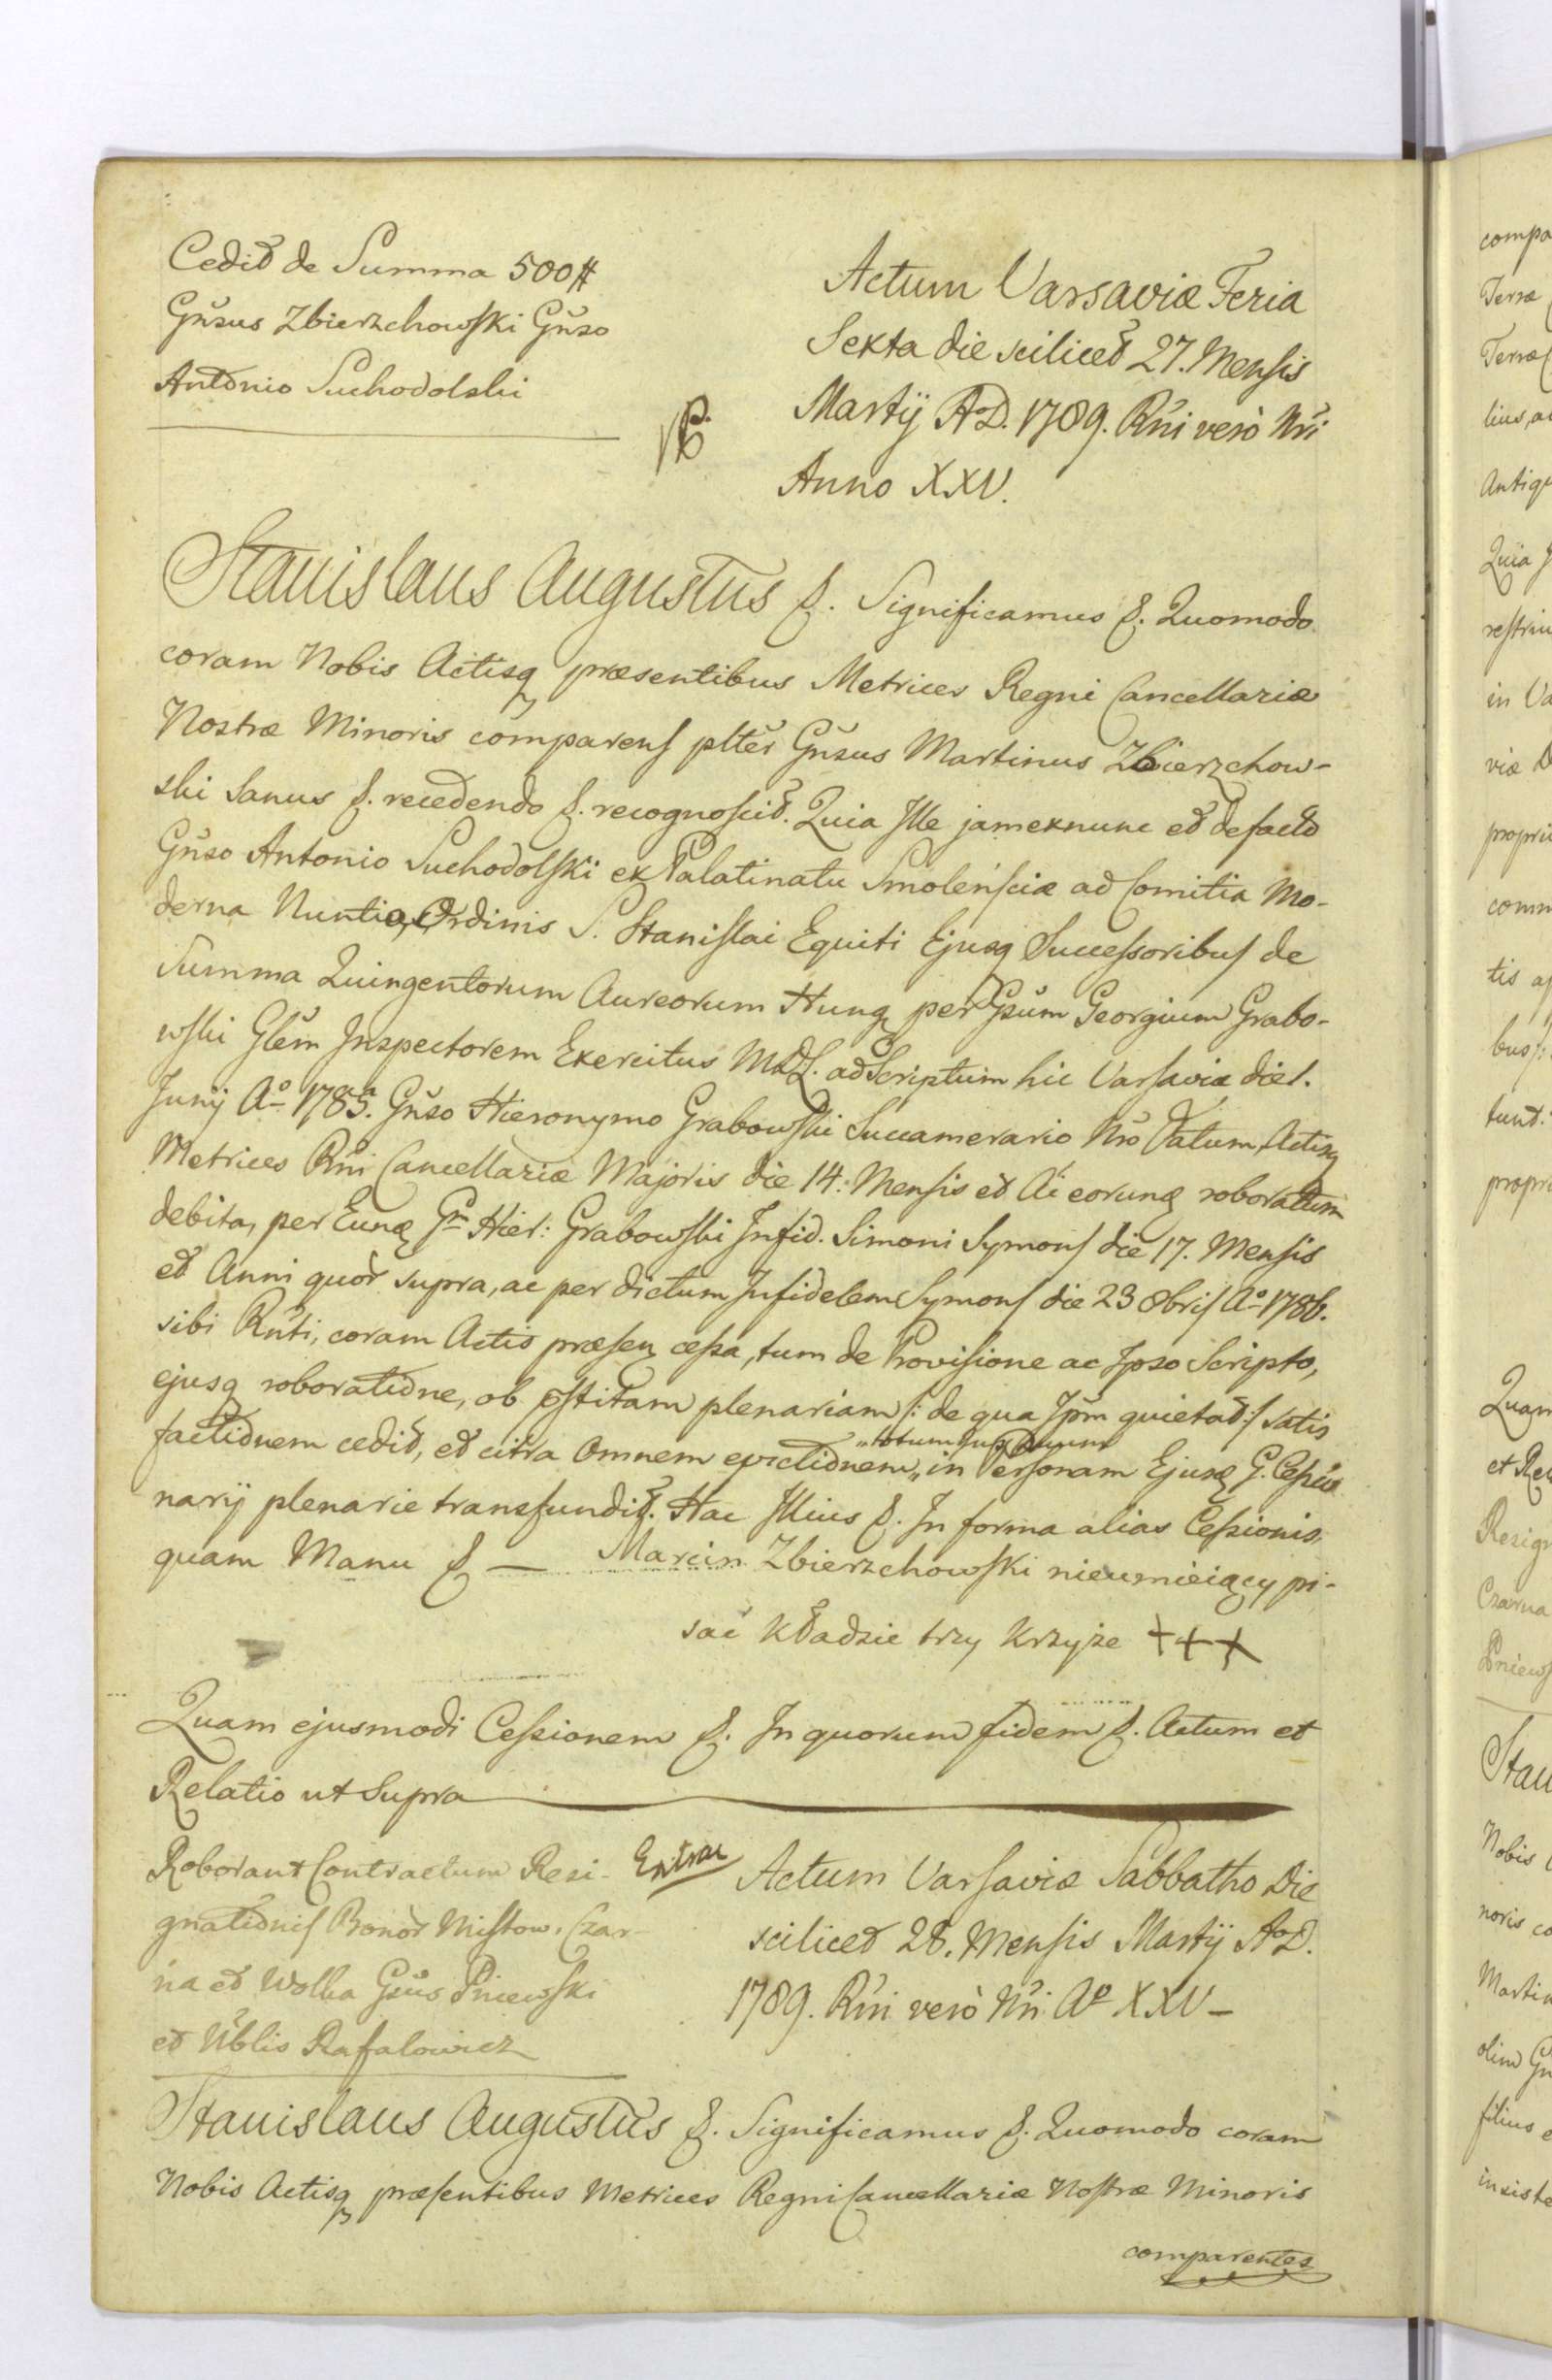 Cedit de Summa 500 #
Gñsus Zbierzchowski Gñso
Antonio Suchodolski
Actum Varsaviæ Feria
Sexta die scilicet 27. Mensis
Martij A.D. 1789. Rñi verò Nri
Anno XXV.
Stanislaus Augustus &. Significamus &. Quomodo
coram Nobis Actisq præsentibus Metrices Regni Cancellariæ
Nostræ Minoris comparens plter Gñsus Martinus Zbierzchow-
ski Sanus &. recedendo &. recognoscit. Quia Ille jamexnunc et defacto
Gñso Antonio Suchodolski ex Palatinatu Smolensciæ ad Comitia Mo-
derna Nuntio, Ordinis S. Stanislai Equiti Ejusq Successoribus de
Summa Quingentorum Aureorum Hung per Gsum Georgium Grabo-
wski Glem Inspectorem Exercitus M.D.L. ad Scriptum hic Varsaviæ die 1.
Junij Aº 1785. Gñso Hieronymo Grabowski Succamerario Nro Datum, Actisq
Metrices Rñi Cancellariæ Majoris die 14. Mensis et Ai eorunq roboratum
debita, per Eunq G Hier: Grabowski Infid. Simoni Symons die 17. Mensis
et Anni quor supra, ac per dictum Infidelem Symons die 23 8bris Aº 1786.
sibi Rñti, coram Actis præsenz cessa, tum de Provisione ac Ipso Scripto,
ejusq roboratione, ob pstitam plenariam /: de qua Ipm quietat :/ satis
factionem cedit, et citra Omnem evictionem „ in Personam Ejusq G. Cessio
„ totumq
narij plenarie transfundit. Hac Illius &. In forma alias Cessionis,
quam Manu & — Marcin Zbierzchowski nieumieiący pi-
sać kładzie trzy krzyże +++
Quam ejusmodi Cessionem &. In quorum fidem &. Actum et
Relatio ut Supra
Roborant Contractum Resi-
gnationis Bonor Mistow, Czar-
na et Wolka Gsus Pniewski
et Nblis Rafalowicz
Extrac
Actum Varsaviæ Sabbatho Die
scilicet 28. Mensis Martij A.D.
1789. Rñi verò Nri Aº XXV –
Stanislaus Augustus &. Significamus &. Quomodo coram
Nobis Actisq præsentibus Metrices Regni Cancellariæ Nostræ Minoris
comparentes
compa
Terræ
Terræ
lius, a
Antiq
Quia
restrin
in Va
viæ D
propri
comm
tis
bus /:
tunt:
propr
Quam
et Re
Resig
Czarna
Pniews
Stan
Nobis
noris co
Martin
olim G
filius
insiste